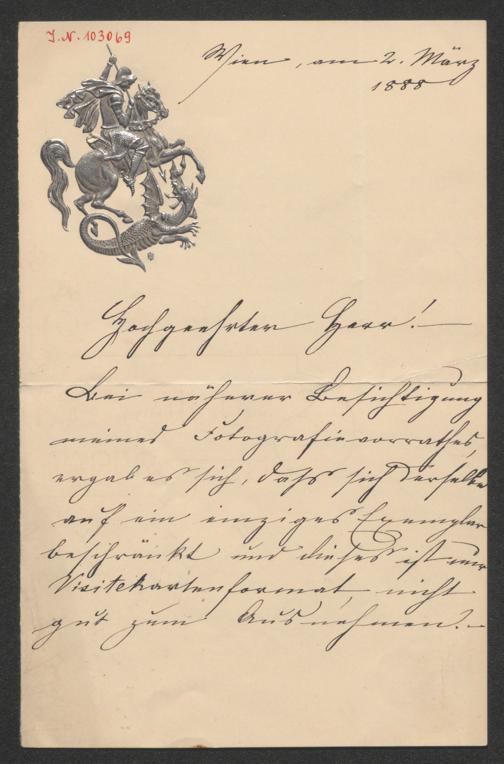 I.N. 103069
Wien, am 2. März
1888
Hochgeehrter Herr! —
Bei näherer Besichtigung
meines Fotografievorrathes,
ergab es sich, dass sich derselbe
auf ein einziges Exemplar
beschränkt und dieses ist nur
Visitekartenformat, nicht
gut zum Ausnehmen. —